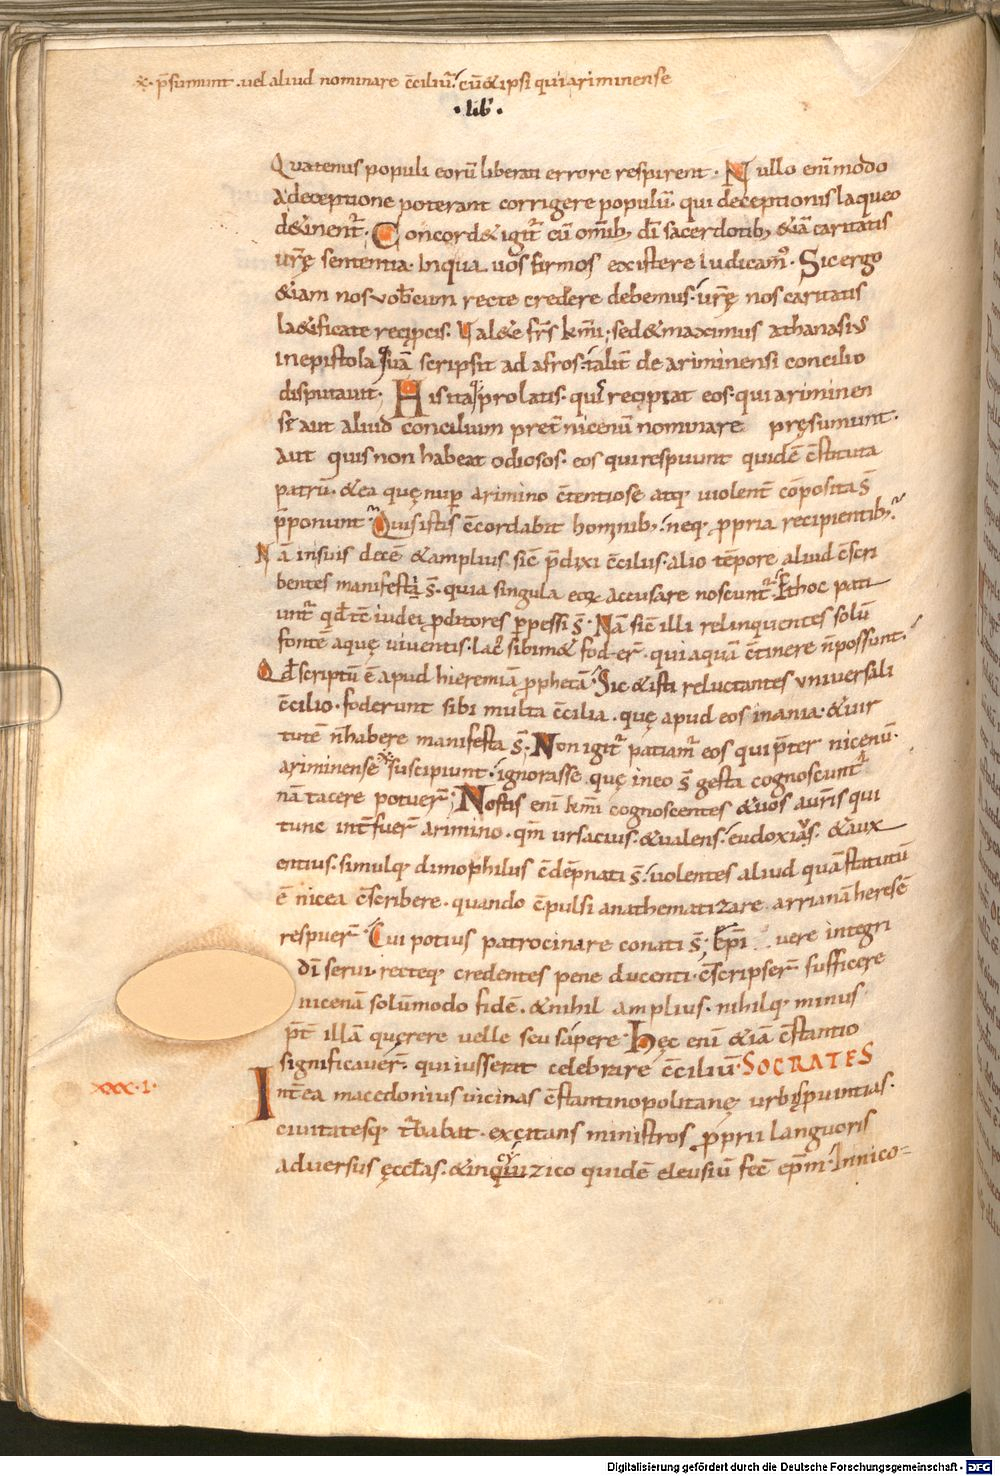 x. p̄sumunt. uel aliud nominare c̄ciliū. cū & ipsi qui ariminense
.lib̄.
Quatenus populi eorū liberati errore respirent. Nullo enī modo
a deceptione poterant corrigere populū. qui deceptionis laqueo
d&inent̄. Concord& igit̄ cū om̄ib; dī sacerdotib; &iā caritatis
ur̄ę sententia. In qua uos firmos existere Iudicam̄. Sic ergo
&iam nos uobcum recte credere debemus. ur̄ę nos caritatis
la&ificate recip̄cis. Val&e fr̄s km̄i; sed & maximus athanasius
in epistola quā scripsit ad afros. talit̄ de ariminensi concilio
disputauit. His ita prolatis. quis recipiat eos. qui ariminen
sē aut aliud concilium pret̄ nicenū nominare pręsumunt.
Aut quis non habeat odiosos. eos qui respuunt quidē c̄stituta
patrū. & ea quę nup̄ arimino c̄tentiose atq; uiolent̄ cōposita s̄
p̄ponunt. Quis istis c̄cordabit hominib; neq; p̄pria recipientib;
Nā in suis decē & amplius sic̄ p̄dixi c̄ciliis. alio tēpore aliud c̄scri
bentes manifesti s̄. quia singula eoꝝ accusare noscunt̄. Et hoc pati
unt̄ qd̄ tē iudei p̄ditores p̄pessi s̄. Nā sic̄ illi relinquentes solū
fontē aquę uiuentis. lac̄ sibim& foder̄. qui aquā c̄tinere n̄ possunt.
Qd̄ scriptū ē apud hieremiā p̄phetā. Sic & isti reluctantes uniuersali
c̄cilio. foderunt sibi multa c̄cilia. quę apud eos inania. & uir
tutē n̄ habere manifesta s̄. Non igit̄ patiam̄ eos qui p̄ter nicenū.
ariminensē suscipiunt. ignorasse quę in eo s̄ gesta cognoscunt̄
nā tacere potuer̄. Nostis enī km̄i cognoscentes & uos auris qui
tunc int̄fuer̄ arimino. qm̄ ursacius. & ualens. eudoxius. & aux
entius. simulq; dimophilus c̄dēpnati s̄. uolentes aliud quā statutū
ē nicea c̄scribere. quando c̄pulsi anathematizare arrianā heresē
respuer̄. Cui potius patrocinare conati s̄. Ep̄i uere integri
dī serui. recteq; credentes pene ducenti. c̄scripser̄ sufficere
nicenā solūmodo fidē. & nihil amplius. nihilq; minus
p̄t illam quęrere uelle seu sapere. Hęc enī &iā c̄stantio
significauer̄. qui iusserat celebrare c̄ciliū. SOCRATES
xxx.i. Int̄ea macedonius uicinas c̄stantinopolitanę urbis puintias.
ciuitatesq; t̄babat. excitans ministros p̄prii languoris
aduersus ęccl̄as. & in quizico quidē eleusiū fec̄ ep̄m. In nico-
Digitalisierung gefördert durch die Deutsche Forschungsgemeinschaft - DFG